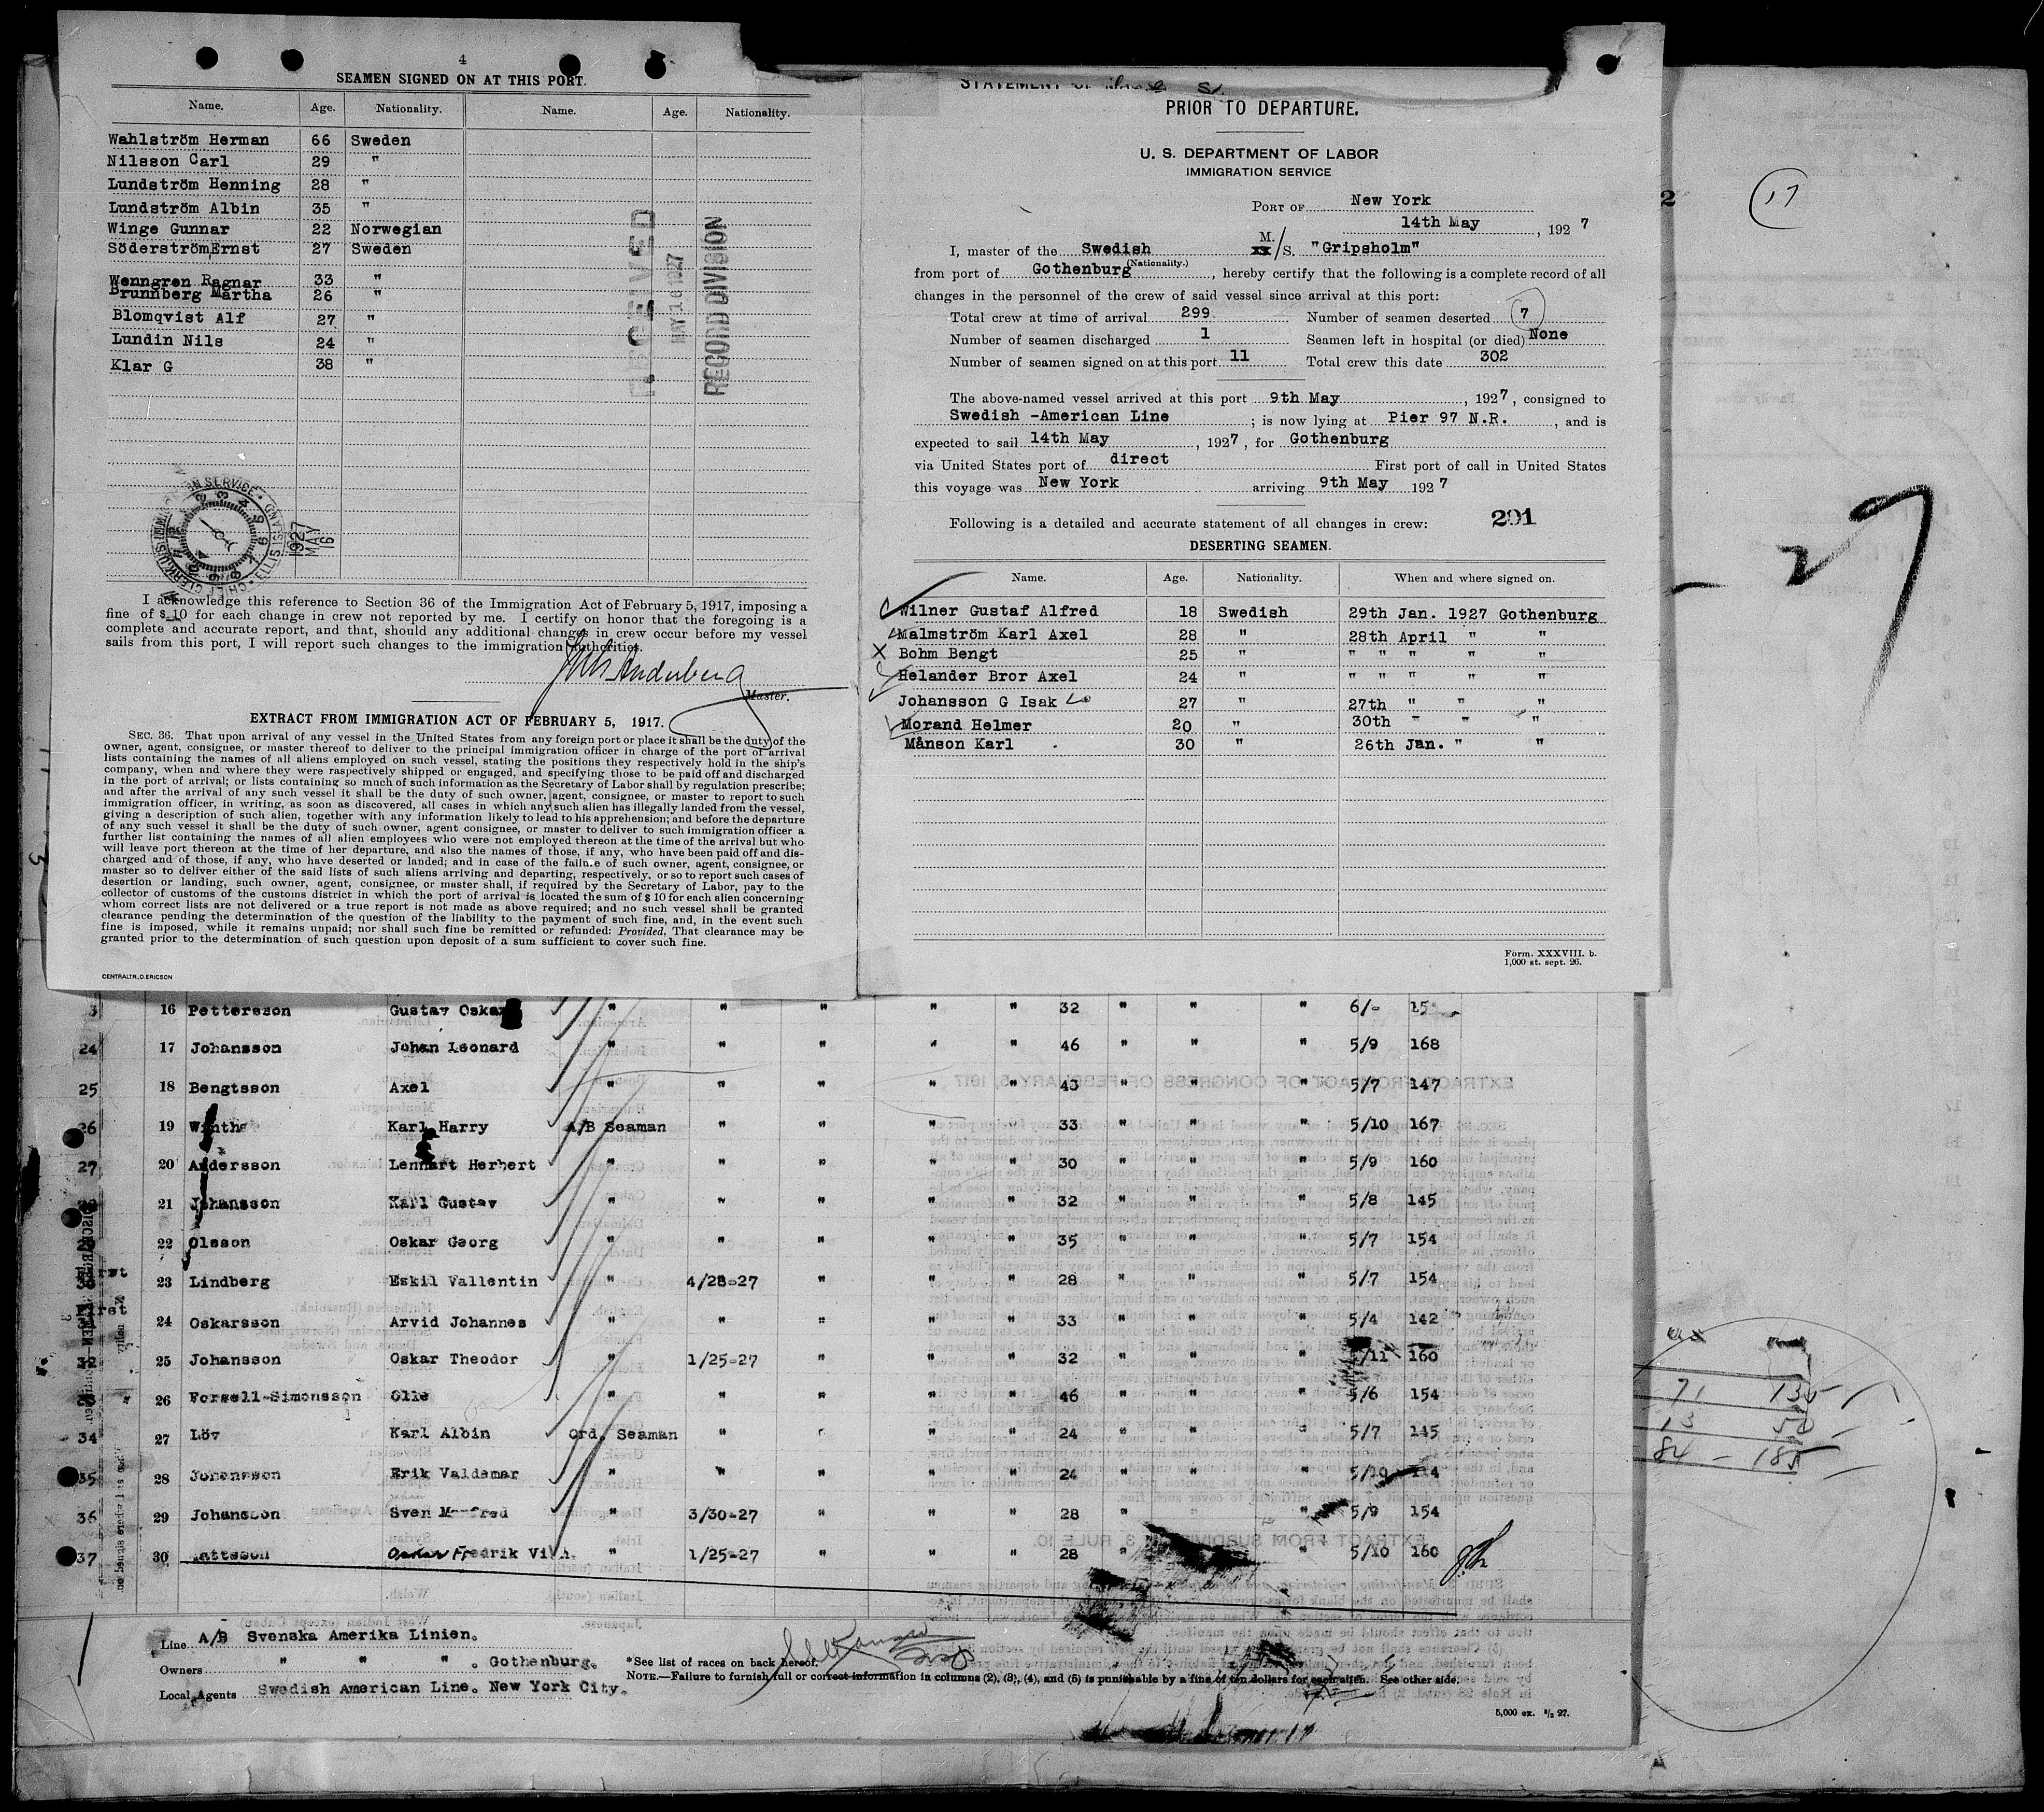 4
SEAMEN SIGNED ON AT THIS PORT.
Name. Age. Nationality. Name. Age. Nationality.
Wahlström Herman 66 Sweden
Nilsson Carl 29 "
Lundström Henning 28 "
Lundström Albin 35 "
Winge Gunnar 22 Norwegian
Söderström,Ernst 27 Sweden
Wenngren Ragnar 33 "
Brunnberg Martha 26 "
Blomqvist Alf 27 "
Lundin Nils 24 "
Klar G 38 "
RECEIVED
MAY 16 1927
RECORD DIVISION
1927
MAY
16
I acknowledge this reference to Section 36 of the Immigration Act of February 5, 1917, imposing a
fine of $ 10 for each change in crew not reported by me. I certify on honor that the foregoing is a
complete and accurate report, and that, should any additional changes in crew occur before my vessel
sails from this port, I will report such changes to the immigration authorities.
Master.
EXTRACT FROM IMMIGRATION ACT OF FEBRUARY 5, 1917.
SEC. 36. That upon arrival of any vessel in the United States from any foreign port or place it shall be the duty of the
owner, agent, consignee, or master thereof to deliver to the principal immigration officer in charge of the port of arrival
lists containing the names of all aliens employed on such vessel, stating the positions they respectively hold in the ship's
company, when and where they were raspectively shipped or engaged, and specifying those to be paid off and discharged
in the port of arrival; or lists containing so much of such information as the Secretary of Labor shall by regulation prescribe;
and after the arrival of any such vessel it shall be the duty of such owner, agent, consignee, or master to report to such
immigration officer, in writing, as soon as discovered, all cases in which any such alien has illegally landed from the vessel,
giving a description of such alien, together with any information likely to lead to his apprehension; and before the departure
of any such vessel it shall be the duty of such owner, agent consignee, or master to deliver to such immigration officer a
further list containing the names of all alien employees who were not employed thereon at the time of the arrival but who
will leave port thereon at the time of her departure, and also the names of those, if any, who have been paid off and dis-
charged and of those, if any, who have deserted or landed; and in case of the failure of such owner, agent, consignee, or
master so to deliver either of the said lists of such aliens arriving and departing, respectively, or so to report such cases of
desertion or landing, such owner, agent, consignee, or master shall, if required by the Secretary of Labor, pay to the
collector of customs of the customs district in which the port of arrival is located the sum of $ 10 for each alien concerning
whom correct lists are not delivered or a true report is not made as above required; and no such vessel shall be granted
clearance pending the determination of the question of the liability to the payment of such fine, and, in the event such
fine is imposed, while it remains unpaid; nor shall such fine be remitted or refunded: Provided, That clearance may be
granted prior to the determination of such question upon deposit of a sum sufficient to cover such fine.
CENTRALTR., D. ERICSON
STATEMENT OF
PRIOR TO DEPARTURE.
U. S. DEPARTMENT OF LABOR
IMMIGRATION SERVICE
PORT OF New York
14th May, 1927
I, master of the Swedish M./S. "Gripsholm"
(Nationality.)
from port of Gothenburg, hereby certify that the following is a complete record of all
changes in the personnel of the crew of said vessel since arrival at this port:
Total crew at time of arrival 299 Number of seamen deserted 7
Number of seamen discharged 1 Seamen left in hospital (or died) None
Number of seamen signed on at this port 11 Total crew this date 302
The above-named vessel arrived at this port 9th May, 1927, consigned to
Swedish -American Line; is now lying at Pier 97 N.R., and is
expected to sail 14th May, 1927, for Gothenburg
via United States port of direct First port of call in United States
this voyage was New York arriving 9th May 1927
Following is a detailed and accurate statement of all changes in crew: 291
DESERTING SEAMEN.
Name. Age. Nationality. When and where signed on.
Wilner Gustaf Alfred 18 Swedish 29th Jan. 1927 Gothenburg
Malmström Karl Axel 28 " 28th April " "
X Bohm Bengt 25 " " " " " "
Helander Bror Axel 24 " " " " " "
Johansson G Isak 27 " 27th " " "
Morand Helmer 20 " 30th " " "
Månson Karl 30 " 26th Jan. " "
Form. XXXVIII. b.
1,000 st. sept. 26.
2
17
27
3 16 Pettersson Gustav Oskar " " " " " 32 " " " 6/- 15
24 17 Johansson Johan Leonard " " " " " 46 " " " 5/9 168
25 18 Bengtsson Axel " " " " " 43 " " " 5/7 147
26 19 Karl Harry A/B Seaman " " " " 33 " " " 5/10 167
27 20 Andersson Lennart Herbert " " " " " 30 " " " 5/9 160
21 Johansson Karl Gustav " " " " " 32 " " " 5/8 145
22 Olsson Oskar Georg " " " " " 35 " " " 5/7 154
First 23 Lindberg Eskil Vallentin " 4/28-27 " " " 28 " " " 5/7 154
First 24 Oskarsson Arvid Johannes " " " " " 33 " " " 5/4 142
32 25 Johansson Oskar Theodor " 1/25-27 " " " 32 " " " /11 160
" 26 Forsell-Simonsson Olle " " " " " 46 " " " 5/6 154
34 27 Löv Karl Albin Ord. Seaman " " " " 24 " " " 5/7 145
35 28 Johansson Erik Valdemar " " " " " 24 " " " 5/10
36 29 Johansson Sven Manfred " 3/30-27 " " " 28 " " " 5/9 154
37 30 Mattsson Oskar Fredrik Vilh. " 1/25-27 " " " 28 " " " 5/10 160
71 135
13 50
84 - 185
Line A/B Svenska Amerika Linien.
Owners " " " . Gothenburg.
Local Agents Swedish American Line. New York City.
*See list of races on back hereof.
NOTE.—Failure to furnish full or correct information in columns (2), (3), (4), and (5) is punishable by a fine of ten dollars for each alien. See other side.
5,000 ex. 3/2 27.